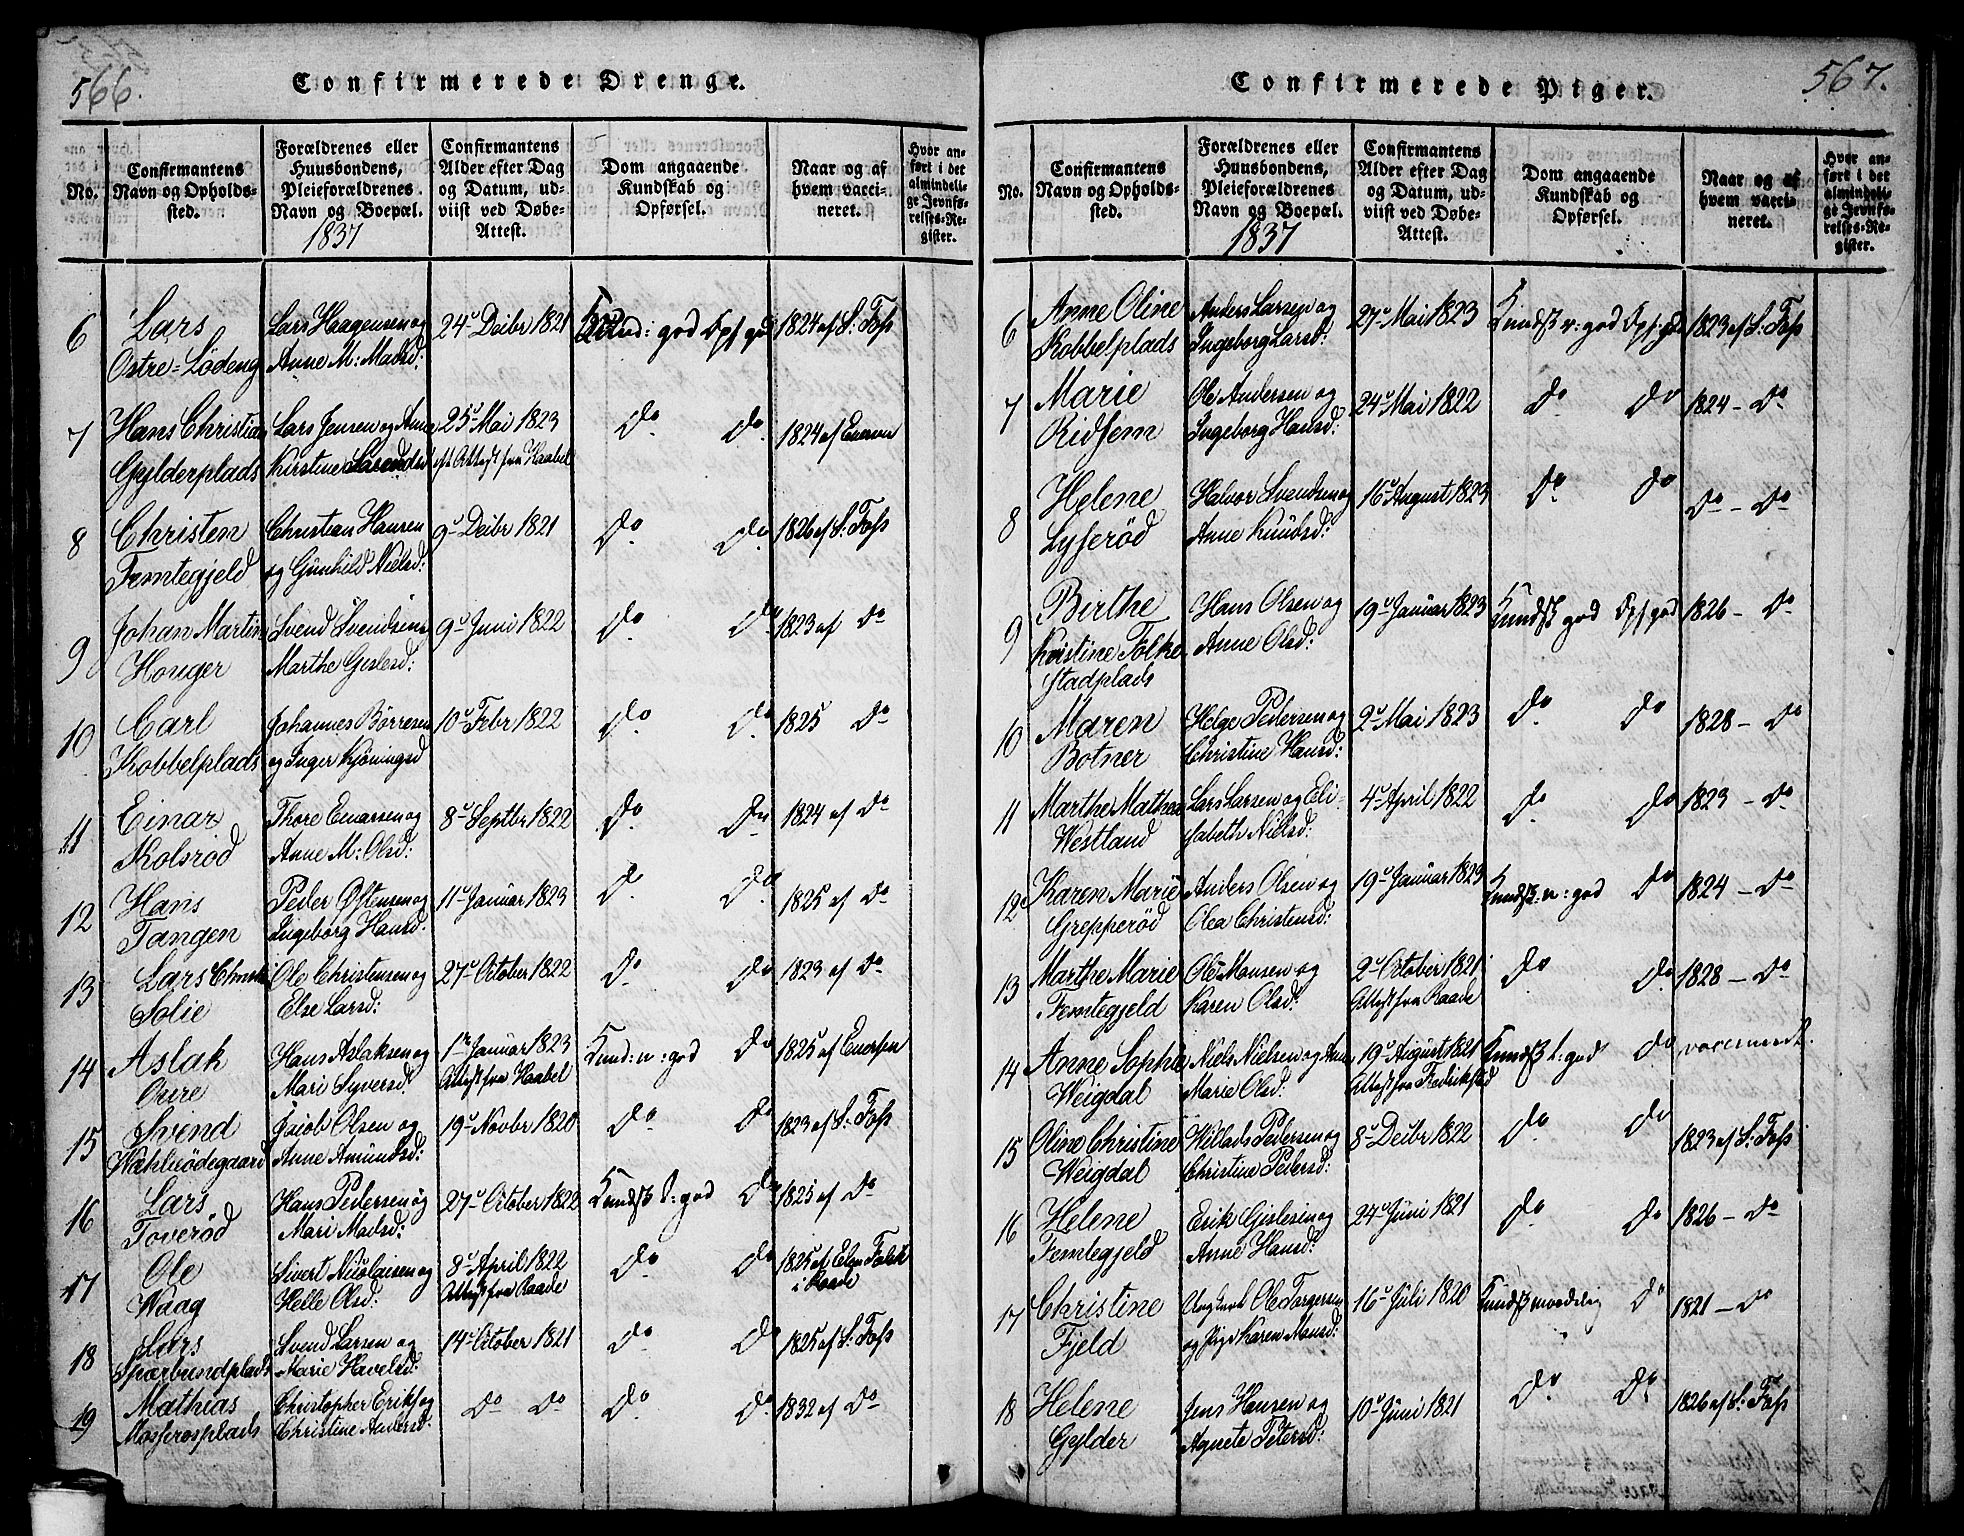 566.
Confirmerede Drenge.
No.
Confirmantens
Navn og Opholds-
sted.
Forældrenes eller
Huusbondens,
Pleieforældrenes
Navn og Boepæl.
1837
Confirmantens
Alder efter Dag
og Datum, ud-
viist ved Døbe-
Attest.
Dom angaaende
Kundskab og
Opførsel.
Naar og af
hvem vacci-
neret.
Hvor an-
ført i det
almindeli-
ge Jevnfø-
relses-Re-
gister.
6 Lars Lars Haagensen og 24 Decbr 1821 Kund: god Opf god 1824 af S: Foss
Østre-Lödeng Anne M: Madsd:
7 Hans Christian Lars Jensen og Anne 25 Mai 1823 do do 1824 af Enersen
Gylderplads Kirstine Larsd Attest fra Haabel
8 Christen Christian Hansen 9 Decbr 1821 do do 1826 af S: Foss
Femtegjeld og Gunhild Nielsd:
9 Johan Martin Svend Svendsen 9 Juni 1822 do do 1823 af do
Houger Marthe Gislesd:
10 Carl Johannes Börresen 10 Febr 1822 do do 1825 do
Kobbelplads og Inger Kjöningsd
11 Einar Thore Enersen og 8 Septbr 1822 do do 1824 af do
Kolsröd Anne M: Olsd:
12 Hans Peder Østensen og 11 Januar 1823 do do 1825 af do
Tangen Ingeborg Hansd:
13 Lars Christ Ole Christensen og 27 October 1822 do do 1823 af do
Solie Else Larsd:
14 Aslak Hans Aslaksen og 1 Januar 1823 Kund: n: god do 1825 af Enersen
Oure Mari Syversd: Attest fra Haabel
15 Svend Jacob Olsen og 19 Novbr 1820 do do 1823 af S: Foss
Anne Amundsd:
16 Lars Hans Pedersen og 27 October 1822 Kundsk t: god do 1825 af do
Toveröd Mari Madsd:
17 Ole Sivert Nicolaisen og 8 April 1822 do do 1825 af Falck
Waag Helle Olsd: Attest fra Raade i Raade
18 Lars Svend Larsen og 14 October 1821 do do 1825 af S: Foss
Spærbundplads Marie Havelsd:
19 Mathias Christopher Eriks og do do do do 1832 af do
Mosserosplads Christine Andersd:
567.
Confirmerede Piger.
No.
Confirmantens
Navn og Opholds-
sted.
Forældrenes eller
Huusbondens,
Pleieforældrenes
Navn og Boepæl.
1837
Confirmantens
Alder efter Dag
og Datum, ud-
viist ved Døbe-
Attest.
Dom angaaende
Kundskab og
Opførsel.
Naar og af
hvem vacci-
neret.
Hvor an-
ført i det
almindeli-
ge Jevnfø-
relses-Re-
gister.
6 Anne Oline Anders Larsen og 27 Mai 1823 Kundsk n: god Opf: gd 1823 af S: Foss
Kobbelplads Ingeborg Larsd:
7 Marie Ole Andersen og 24 Mai 1822 do do 1824 - do
Ridsem Ingeborg Hansd:
8 Helene Halvor Svendsen og 16 August 1823 do do do - do
Lyseröd Anne Knudsd:
9 Birthe Hans Olsen og 19 Januar 1823 Kundsk god Opf god 1826 - do
Kristine Folke Anne Olsd:
stadplads
10 Maren Helge Pedersen og 2 Mai 1823 do do 1828 - do
Botner Christine Hansd:
11 Marthe Mathea Lars Larsen og Eli- 4 April 1822 do do 1823 - do
Westland sabeth Nielsd:
12 Karen Marie Anders Olsen og 19 Januar 1823 Kundsk: n: god do 1824 - do
Grepperöd Olea Christensd:
13 Marthe Marie Ole Monsen og 2 October 1821 do do 1828 - do
Femtegjeld Karen Olsd: Attest fra Raade
14 Anne Sophie Niels Nielsen og Anne 19 August 1821 Kundsk t: god do
Weigdal Marie Olsd: Attest fra Fredrikstad
15 Oline Christine Willads Pedersen og 8 Decbr 1822 do do 1823 af S: Foss
Weigdal Christine Pedersd:
16 Helene Erik Gislesen og 24 Juni 1821 do do 1826 - do
Femtegjeld Anne Hansd:
17 Christine Ungkarl Ole Torgersen 16 Juli 1820 Kundsk maadelig do 1821 - do
Fjeld og Pige Karen Monsd:
18 Helene Jens Hansen og 10 Juni 1821 do do 1826 af S: Foss
Gylder Agnete Petersd: